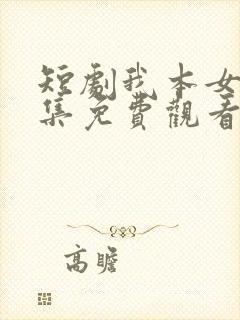 短劇我本女
集免費觀看
高瞻